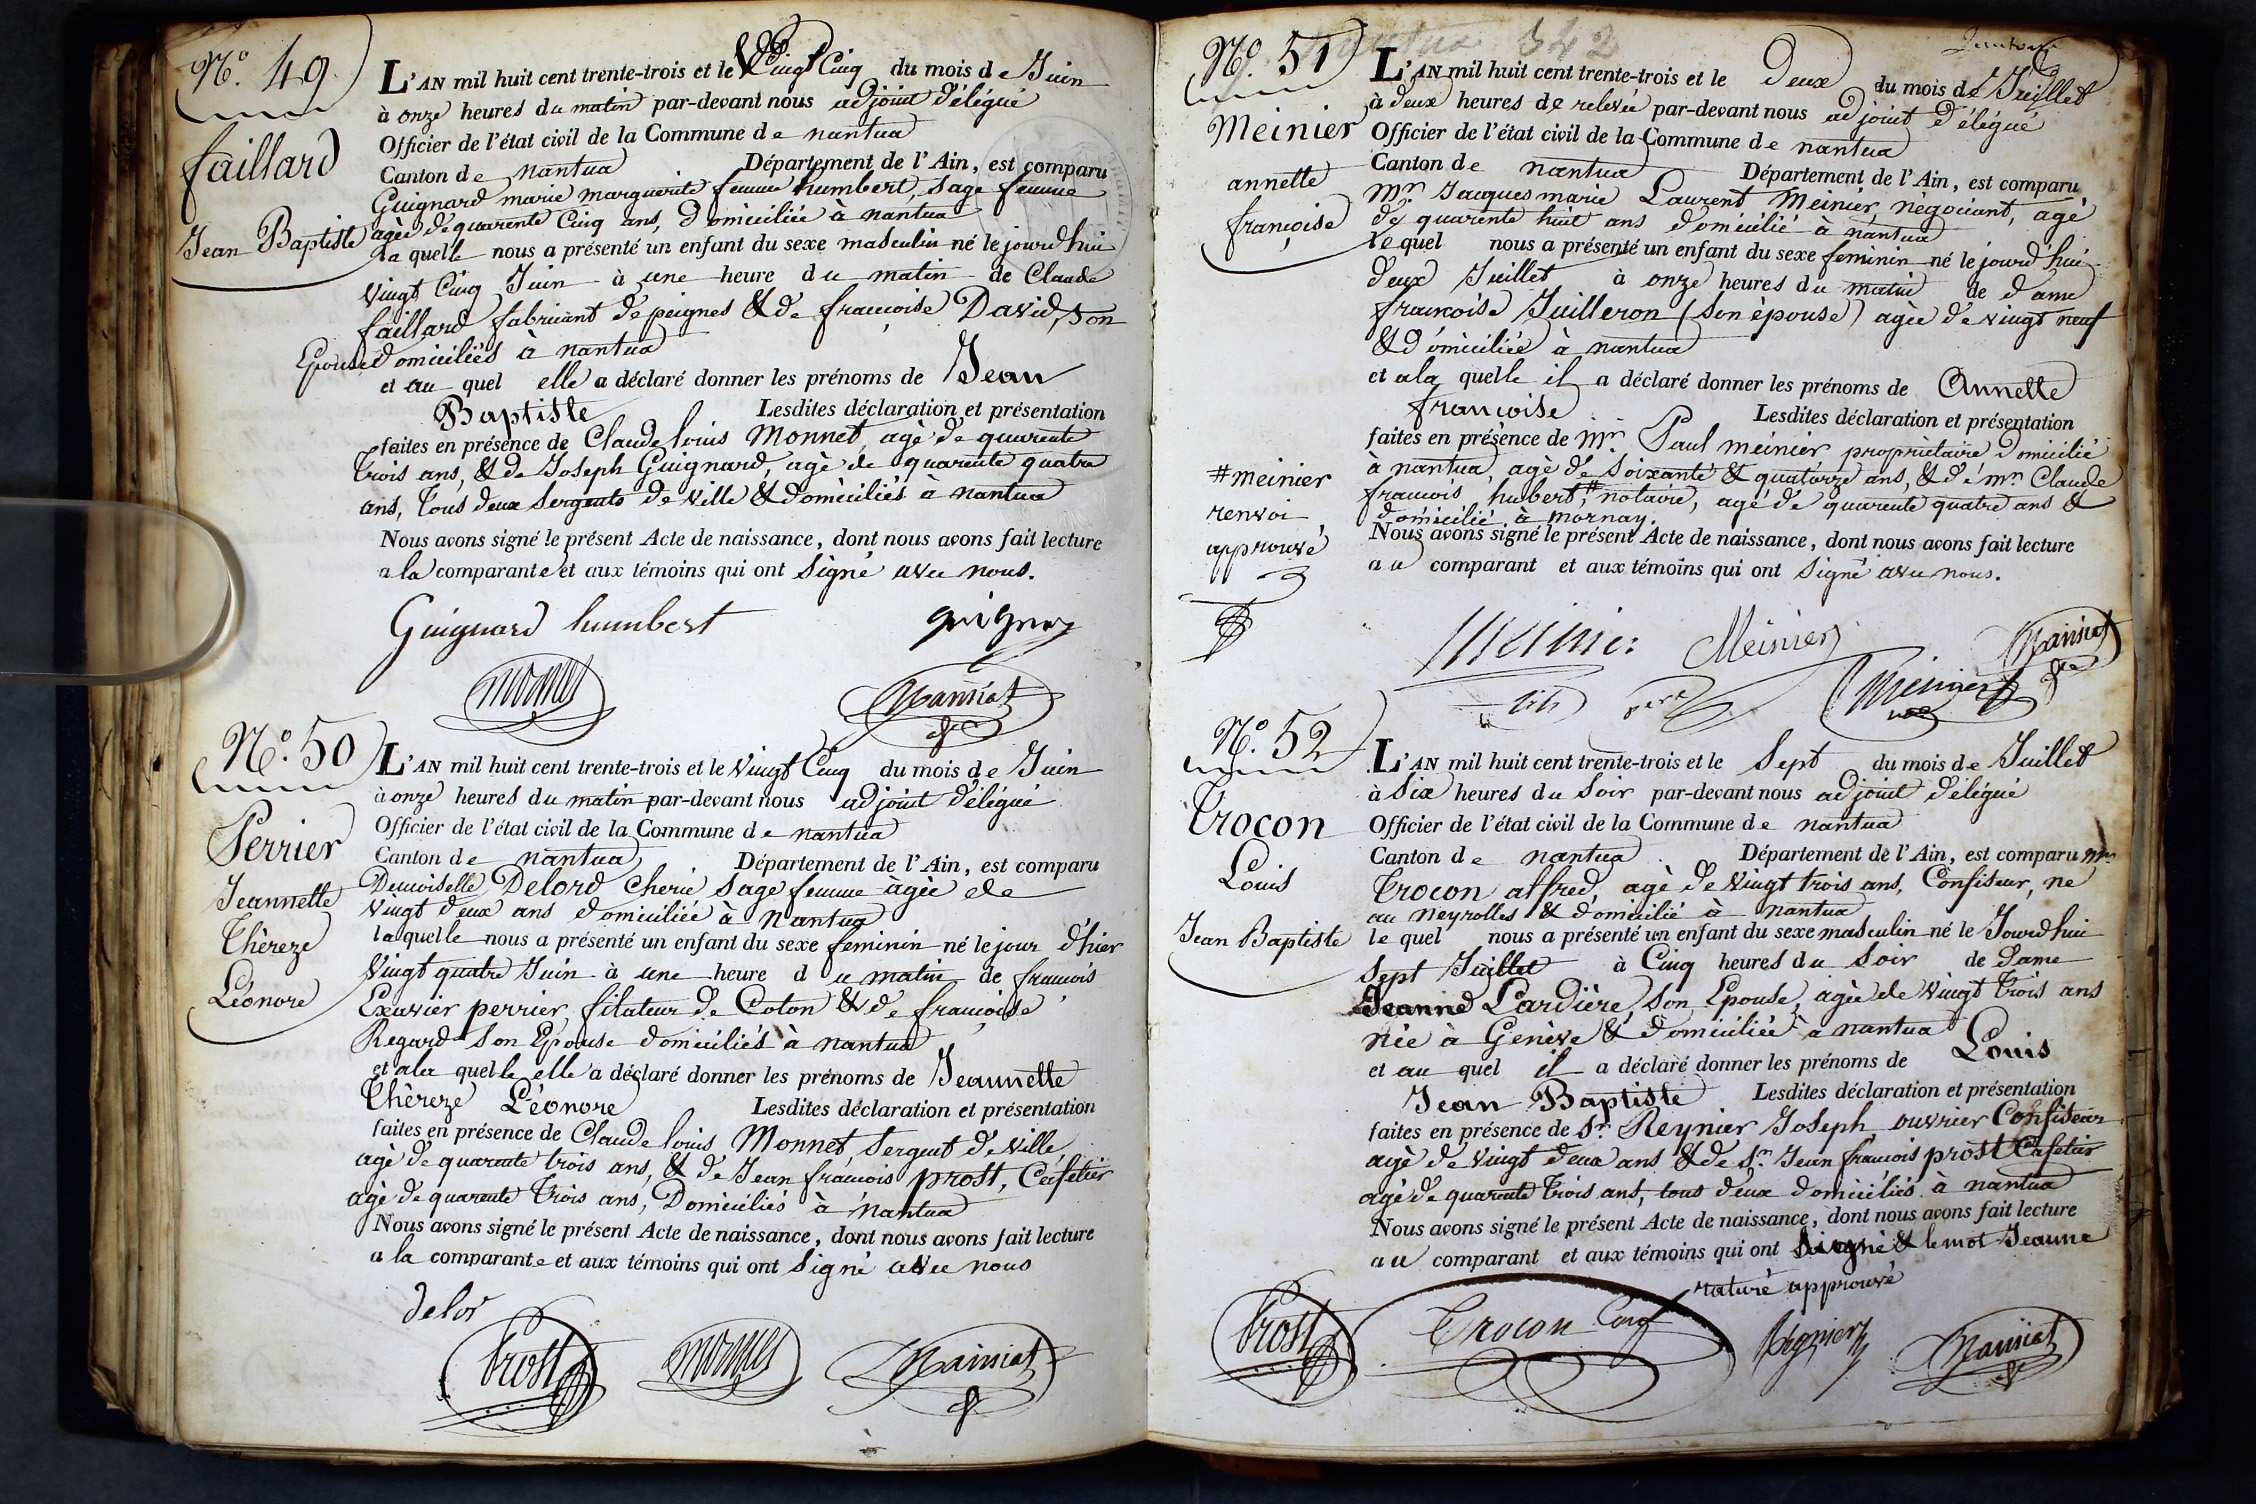 N.º 49
faillard
Jean Baptiste
L'AN mil huit cent trente-trois et le Vingt Cinq du mois de Juin
à onze heures du matin par-devant nous adjoint délégué
Officier de l'état civil de la Commune de nantua
Canton de nantua Département de l'Ain, est comparu
Guignard marie marguerite femme humbert, sage femme
agée de quarente Cinq ans, domiciliée à nantua
la quelle nous a présenté un enfant du sexe masculin né le jourd'hui
Vingt Cinq Juin à une heure du matin de Claude
faillard fabricant de peignes & de francoise David, son
Epouse domiciliés à nantua
et au quel elle a déclaré donner les prénoms de Jean
Baptiste Lesdites déclaration et présentation
faites en présence de Claude louis Monnet, agé de quarente
trois ans, & de Joseph Guignard, agé de quarente quatre
ans, Tous deux sergents de ville & domiciliés à nantua
Nous avons signé le présent Acte de naissance, dont nous avons fait lecture
a la comparante et aux témoins qui ont signé avec nous.
Guignard humbert
monnet
N.º 50
Perrier
Jeannette
Thèreze
Léonore
L'AN mil huit cent trente-trois et le Vingt Cinq du mois de Juin
à onze heures du matin par-devant nous adjoint délégué
Officier de l'état civil de la Commune de nantua
Canton de nantua Département de l'Ain, est comparu
Demoiselle Delord cherie sage femme agée de
Vingt deux ans domiciliée à Nantua
la quelle nous a présenté un enfant du sexe feminin né le jour d'hier
Vingt quatre Juin à une heure du matin de francois
Exavier perrier, filateur de Coton & de francoise
Regard son Epouse domiciliés à nantua
et a la quelle elle a déclaré donner les prénoms de Jeannette
Thèreze Léonore Lesdites déclaration et présentation
faites en présence de Claude louis Monnet, sergent de ville,
agé de quarente trois ans, & de Jean francois prost, Cafetier
agé de quarente Trois ans, Domiciliés à Nantua
Nous avons signé le présent Acte de naissance, dont nous avons fait lecture
a la comparante et aux témoins qui ont signé avec nous
delor
prost monnet
342
N.º 51
Meinier
annette
françoise
L'AN mil huit cent trente-trois et le Deux du mois de Juillet
à deux heures de relevée par-devant nous adjoint délégué
Officier de l'état civil de la Commune de nantua
Canton de nantua Département de l'Ain, est comparu
Mr. Jacques marie Laurent Meinier, negociant, agé
de quarente huit ans domicilié à nantua
le quel nous a présenté un enfant du sexe feminin né le jourd'hui
deux Juillet à onze heures du matin de dame
francoise Juilleron (son èpouse) agée de vingt neuf
& domiciliée à nantua
et a la quelle il a déclaré donner les prénoms de Annette
francoise Lesdites déclaration et présentation
faites en présence de Mr. Paul meinier propriètaire domicilié
à nantua, agé de soixante & quatorze ans, & de mr. Claude
francois hubert, # notaire, agé de quarente quatre ans &
domicilié à mornay.
# meinier
renvoi
approuvé
Nous avons signé le présent Acte de naissance, dont nous avons fait lecture
au comparant et aux témoins qui ont signé avec nous.
Meinier Meinier
fils père Meinier
N.º 52
Trocon
Louis
Jean Baptiste
L'AN mil huit cent trente-trois et le Sept du mois de Juillet
à Six heures du Soir par-devant nous adjoint délégué
Officier de l'état civil de la Commune de nantua
Canton de nantua Département de l'Ain, est comparu Mr.
Trocon alfred, agé de Vingt trois ans, Confiseur, né
au neyrolles & domicilié à nantua
le quel nous a présenté un enfant du sexe masculin né le Jourd'hui
Sept Juillet à Cinq heures du Soir de Dame
Jeanne Lardière, son Epouse, agée de Vingt Trois ans
née à Genève & domiciliée à nantua
et au quel il a déclaré donner les prénoms de Louis
Jean Baptiste Lesdites déclaration et présentation
faites en présence de Sr. Reynier Joseph ouvrier Confiseur
agé de Vingt deux ans & de Sr. Jean francois prost Cafetier
agé de quarente trois ans, tous deux domiciliés à nantua
Nous avons signé le présent Acte de naissance, dont nous avons fait lecture
au comparant et aux témoins qui ont signé & le mot Jeanne
raturé approuvé
prost Trocon Régnier